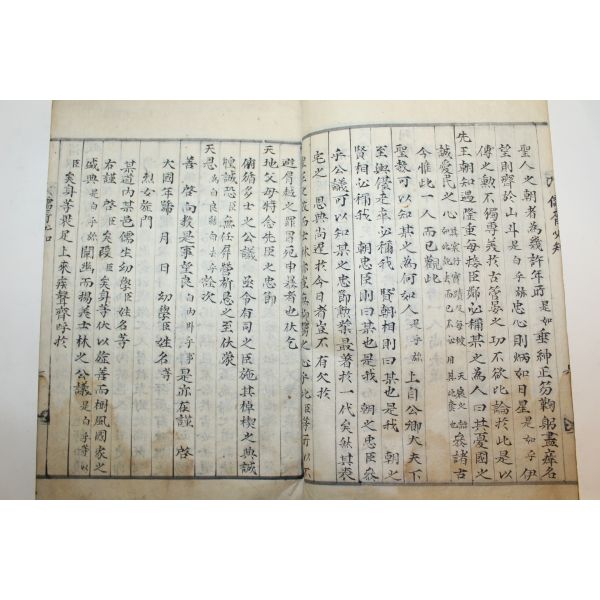 聖人之朝者為幾許年所是如垂紳正笏鞠躬盡瘁名
望則齊於山斗是白乎旀忠心則炳如日星是如乎伊
傅之勳不獨專美於古管晏之功不欲比論於此是以
先王朝知遇隆重每接臣鄰必稱某之為人曰共憂國之
誠愛民之心
今惟此一人而已觀此
聖教可以知某之為何如人是乎旀上自公卿大夫下
至輿儓走卒必稱我賢朝相則曰某也是我朝之
賢相必稱我朝忠臣則曰某也是我朝之忠臣
乎公議可以知某之忠節勳業最著於一代矣然其表
宅之恩典尚遲於今日者豈不有欠於
避屑越之罪冒死申籲者也伏乞
天地父母特念先臣之忠節
俯循多士之公議亟令有司之臣施其棹楔之典誠
惶誠恐無任屏營祈懇之至伏蒙
天恩為白良詮次
善啓向教是事望良白內臥乎事是亦在謹啓
大國年號月日幼學臣姓名等
烈女旌門
某道內某邑儒生幼學臣姓名等
右謹啓臣矣段臣矣身等伏以旌善而樹風國家之
盛典是白乎旀闡幽而揚義士林之公議是白乎等以
臣矣身等裹足上來疾聲齊呼於